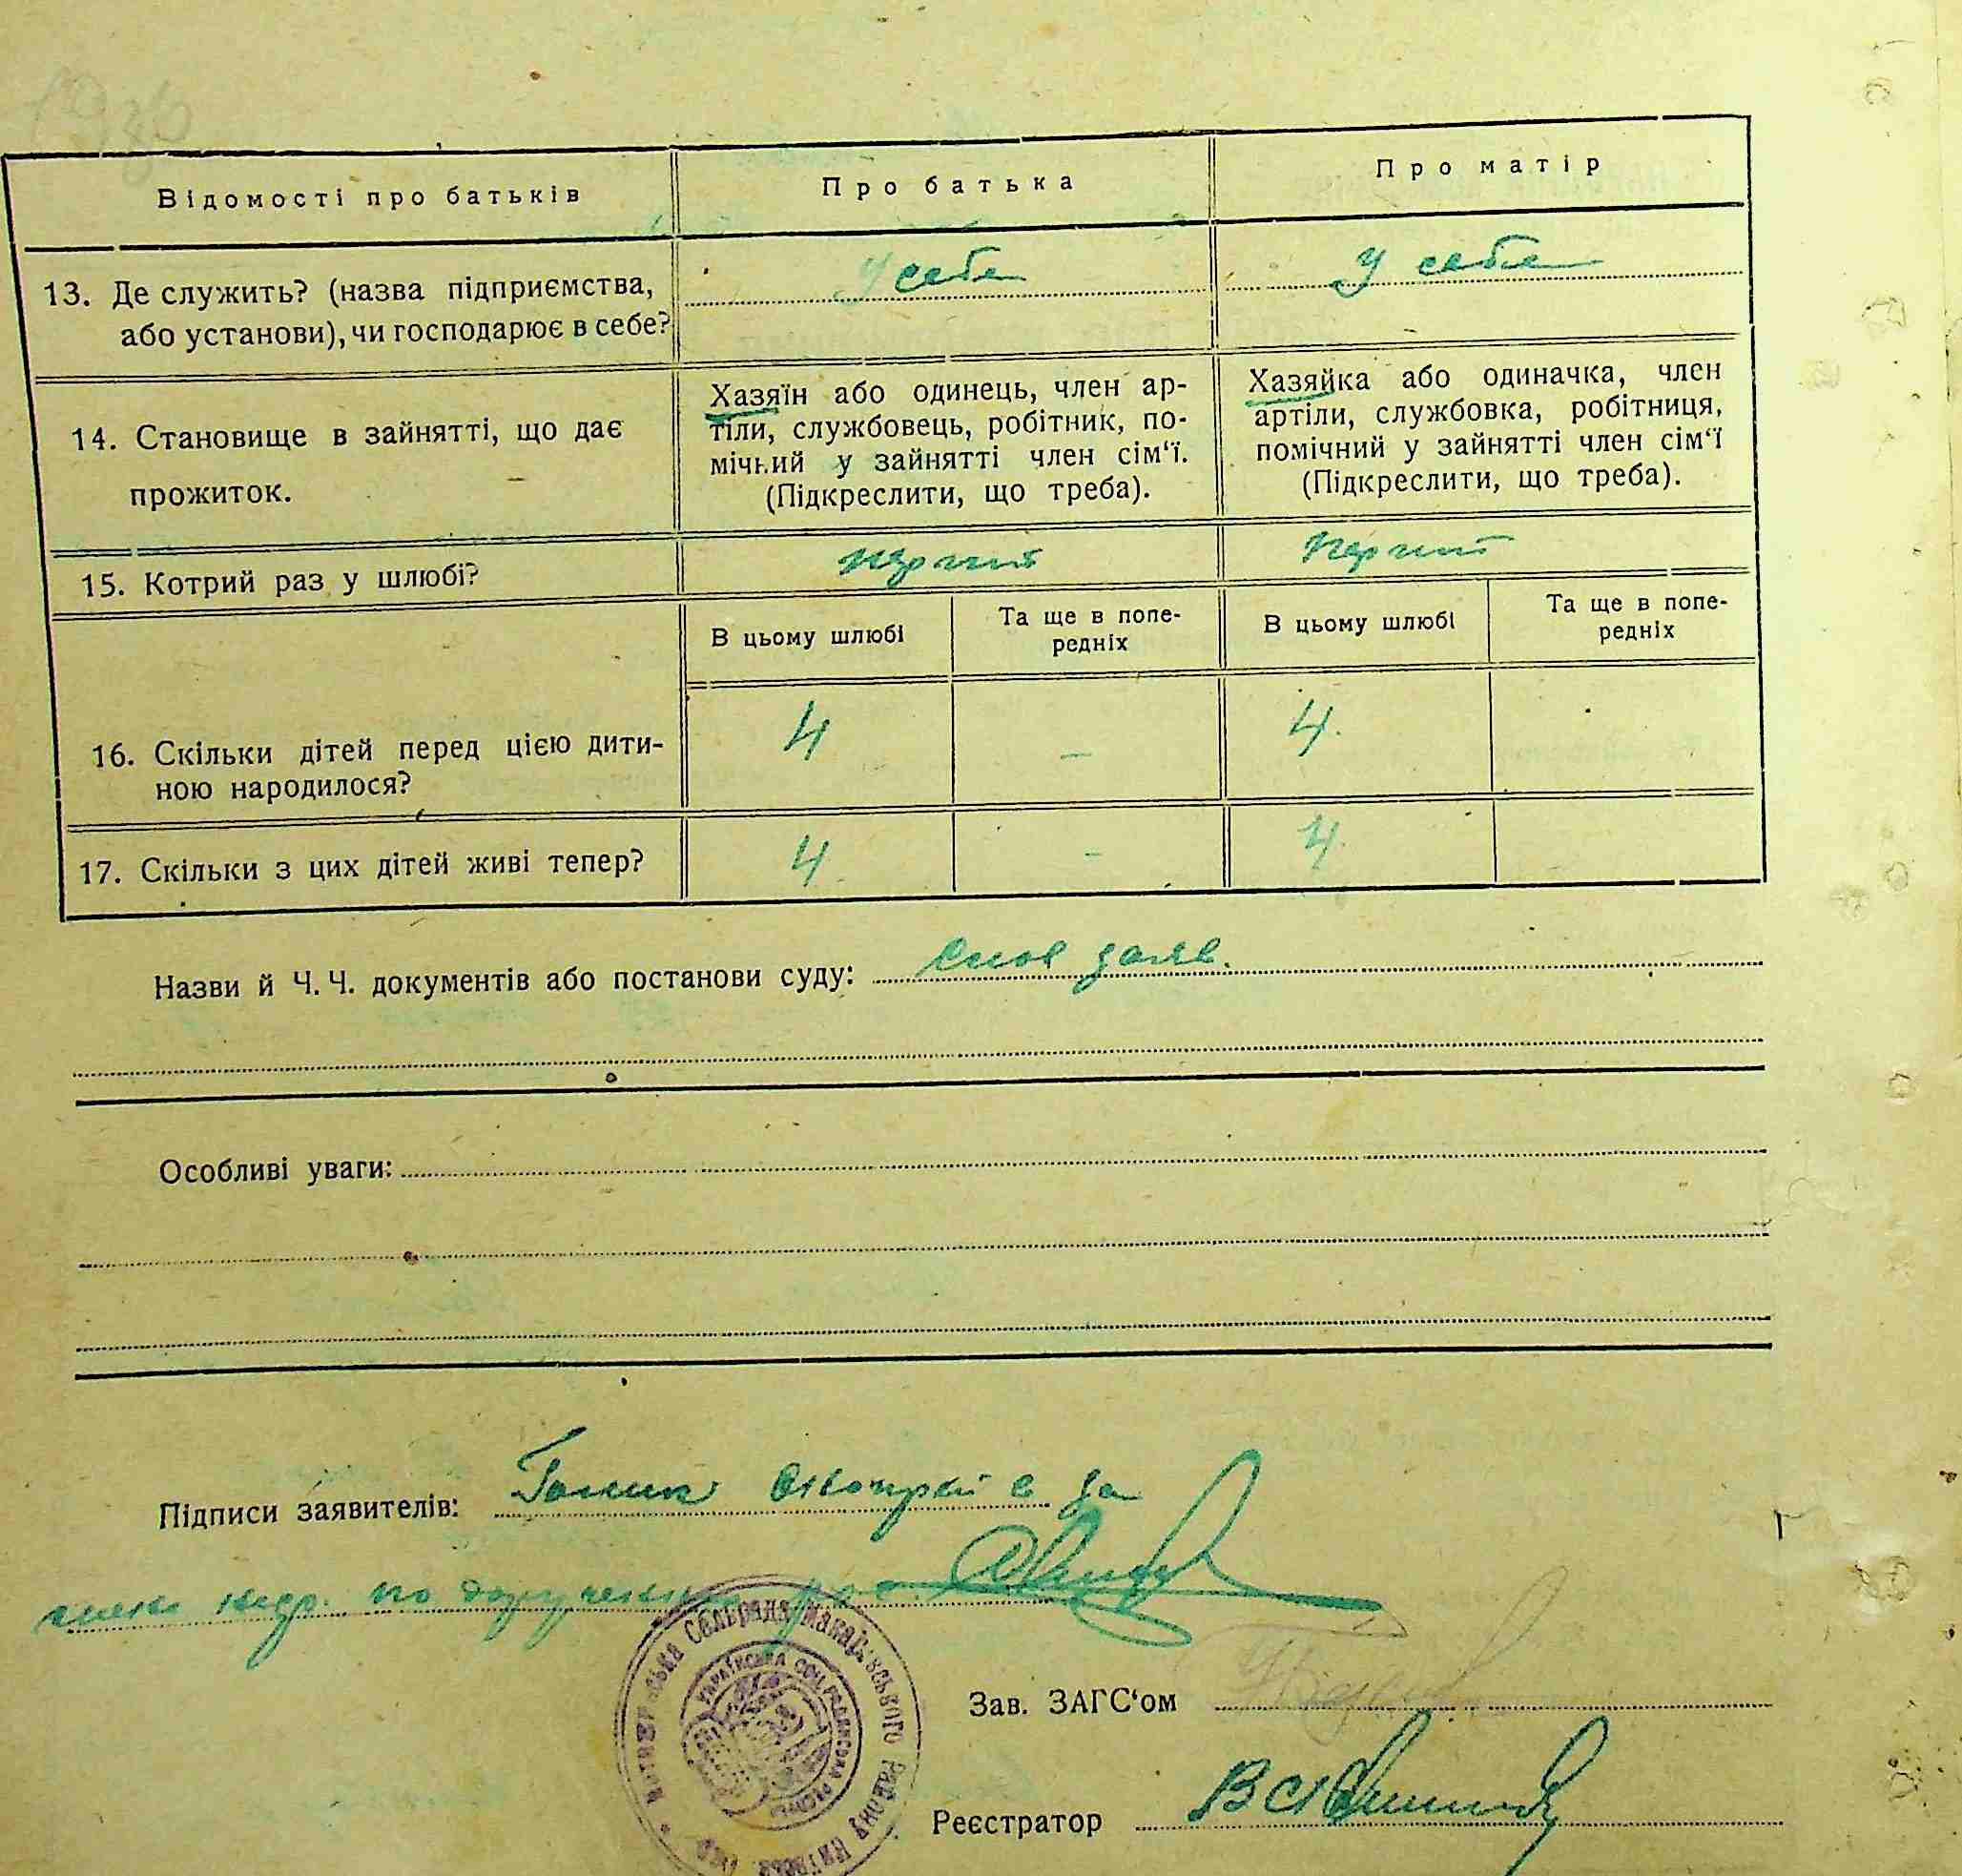 1930
Відомості про батьків
Про батька
Про матір
13. Де служить? (назва підприємства,
або установи), чи господарює в себе?
у себе
у себе
14. Становище в зайнятті, що дає
прожиток.
Хазяїн або одинець, член ар-
тіли, службовець, робітник, по-
мічний у зайнятті член сім‘ї.
(Підкреслити, що треба).
Хазяйка або одиначка, член
артіли, службовка, робітниця,
помічний у зайнятті член сім‘ї
(Підкреслити, що треба).
15. Котрий раз у шлюбі?
перший
перший
В цьому шлюбі
Та ще в попе-
редніх
В цьому шлюбі
Та ще в попе-
редніх
16. Скільки дітей перед цією дити-
ною народилося?
4
-
4.
17. Скільки з цих дітей живі тепер?
4
-
4.
Назви й Ч. Ч. документів або постанови суду: заяв.
Особливі уваги:
Підписи заявителів: за
по доручен
Сельрада Макарівського району
УКРАЇНСЬКА СОЦ. РАДЯНСЬКА РЕСПУБ
Зав. ЗАГС‘ом
Реєстратор